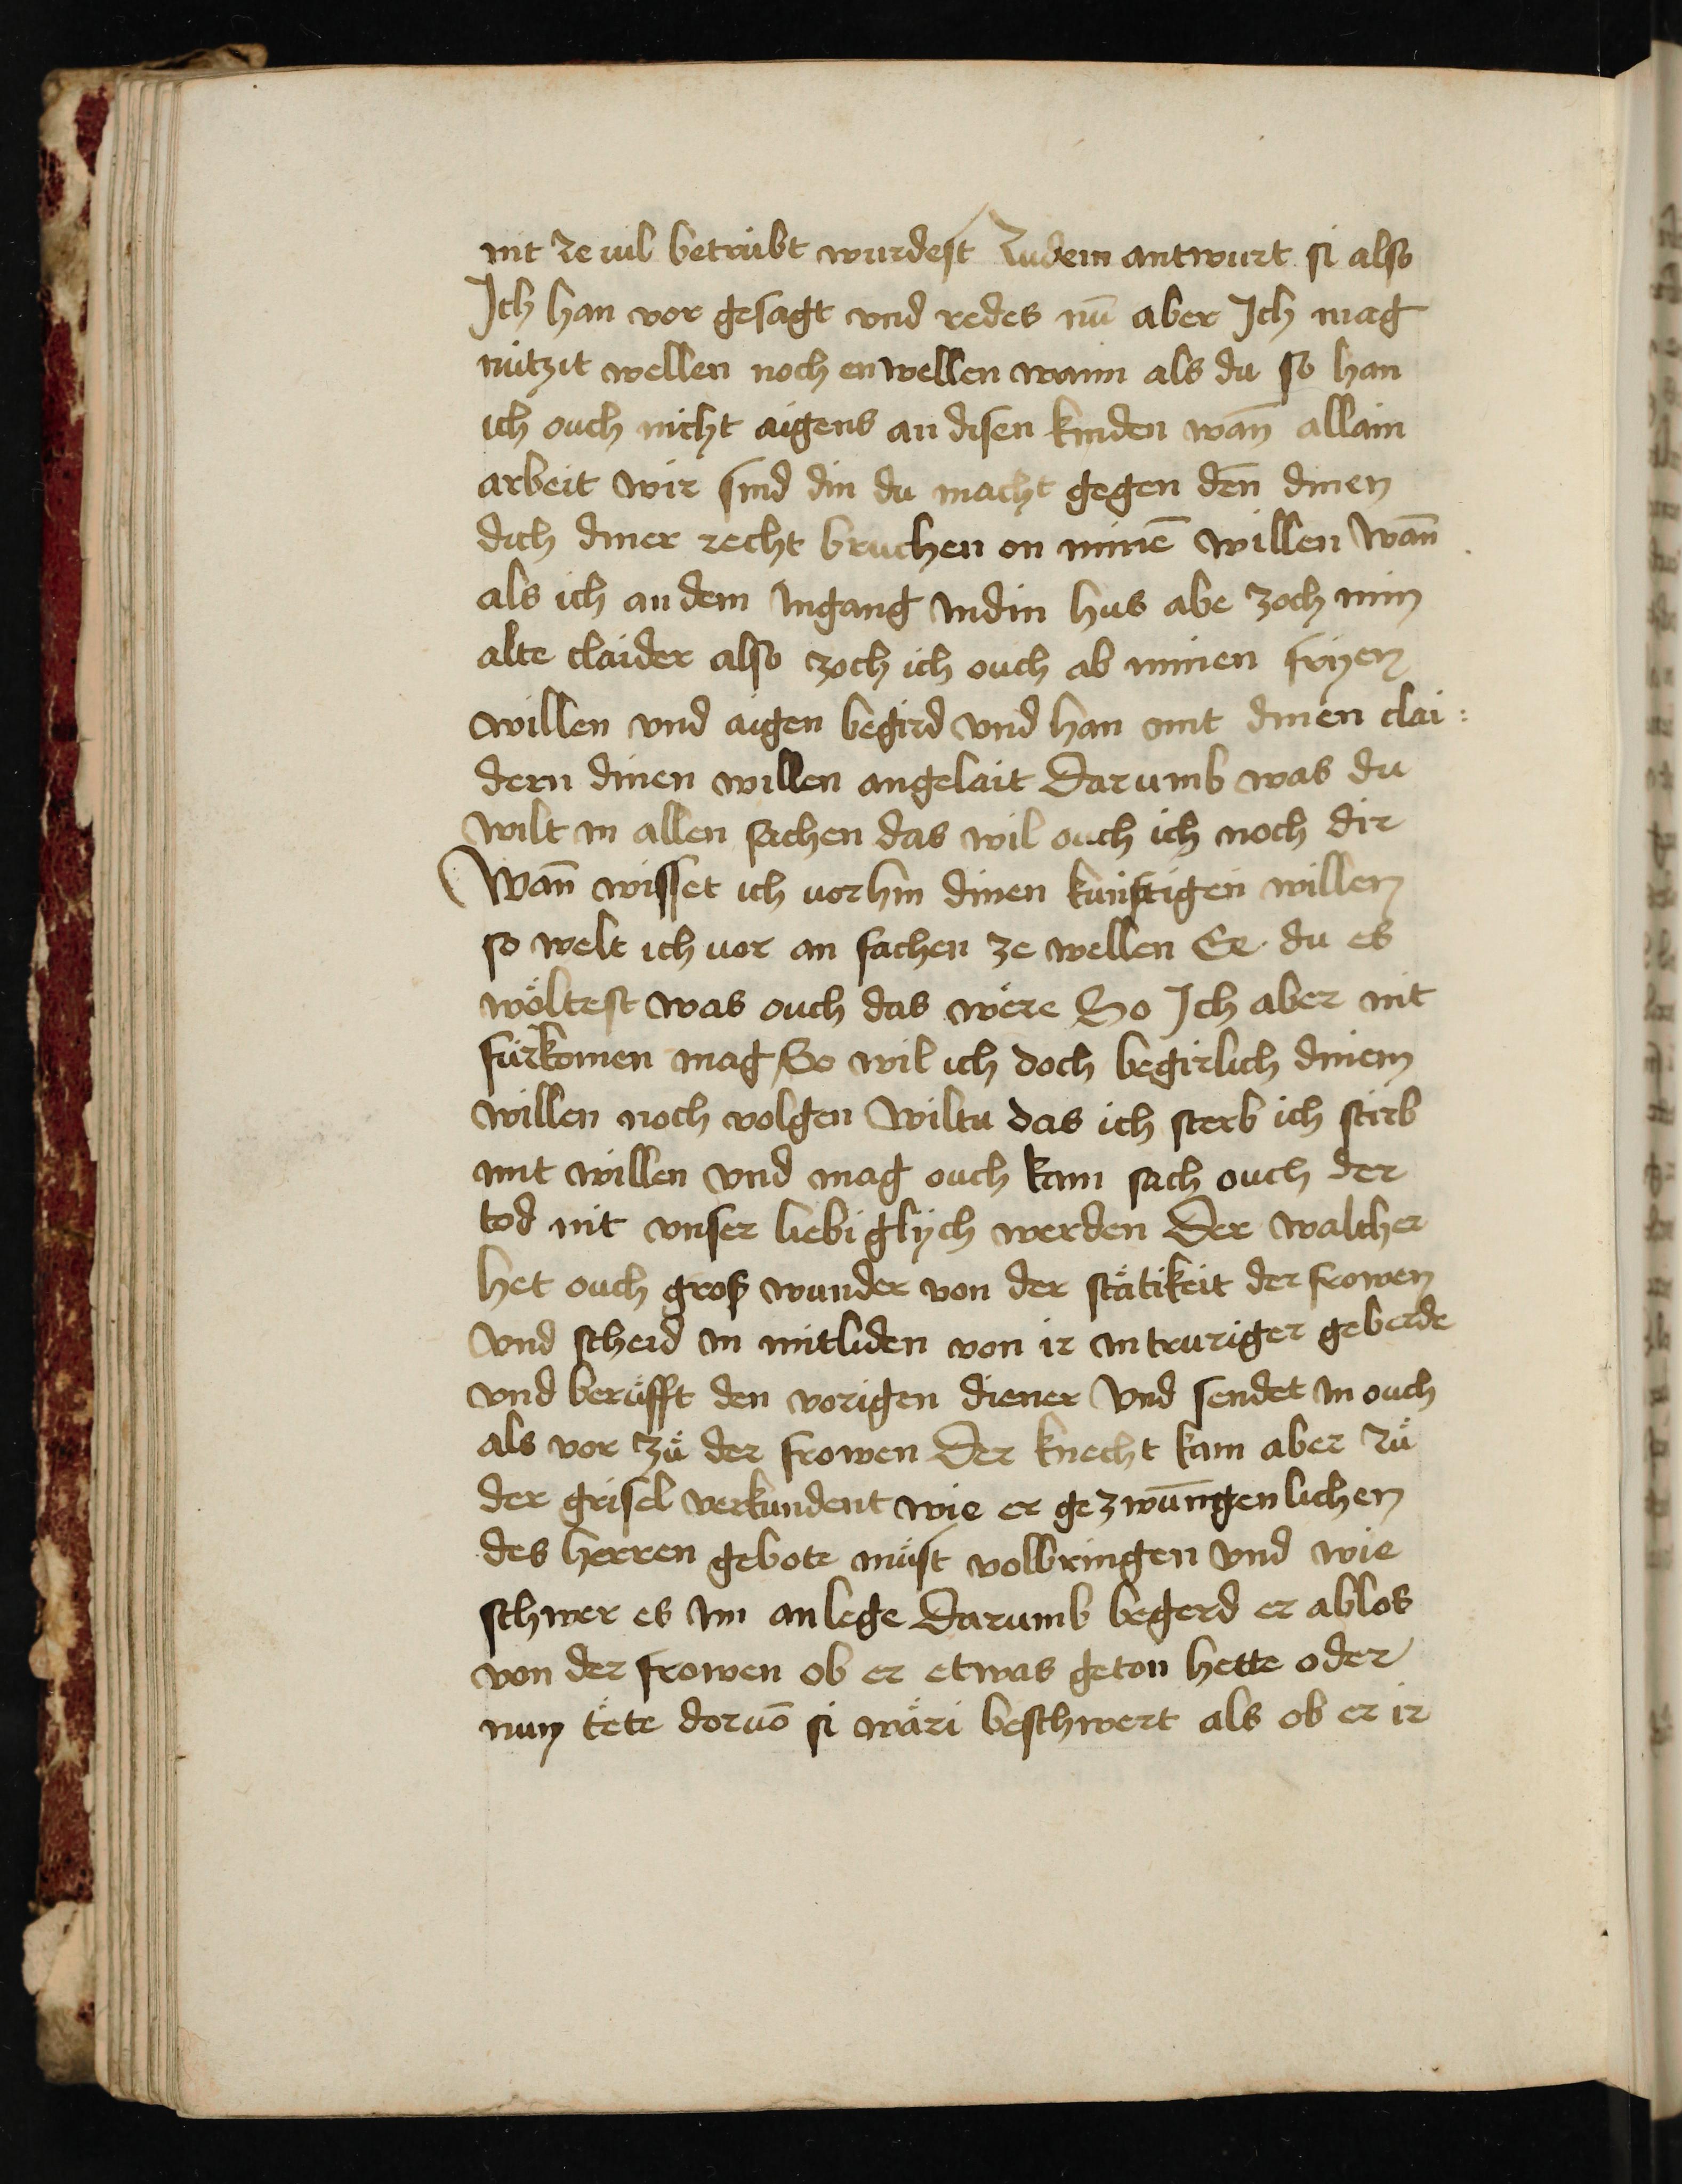 nit ze vil betrübt wurdest Zudem antwurt si also
Ich han vor gesagt vnd redes nū aber Ich mag
nützit wellen noch enwellen wann als du so han
ich ouch nicht aigens an disen kinden wan̄ allain
arbeit wir sind din du macht gegen den̄ dinen
dich diner recht bruchen on minē willen wan̄
als ich an dem Ingang Indin hus abe zoch min
alte claider also zoch ich ouch ab minen fryen
willen vnd aigen begird vnd han mit dinen clai:
dern dinen willen angelait Darumb was du
wilt in allen sachen das wil ouch ich noch dir
Wan̄ wisset ich vorhin dinen künftigen willen
so welt ich vor an fachen ze wellen Ee du es
wöltest was ouch das wëre So Ich aber nit
fürkomen mag So wil ich doch begirlich dinem
willen noch volgen Wiltu das ich sterb ich stirb
mit willen vnd mag ouch kain sach ouch der
tod nit vnser liebi glych werden Der walther
het ouch groß wunder von der stätikeit der frowen
vnd scheid in mitliden von ir in truriger geberde
vnd berüfft den vorigen diener vnd sendet In ouch
als vor zü der frowen Der knecht kam aber zü
der grisel verkundent wie er gezwūngenlichen
des herren gebote müst volbringen vnd wie
schwer es Im anlege Darumb begerd er ablos
von der frowen ob er etwas geton hette oder
nun tëte doruō si wäri beschwert als ob er ir